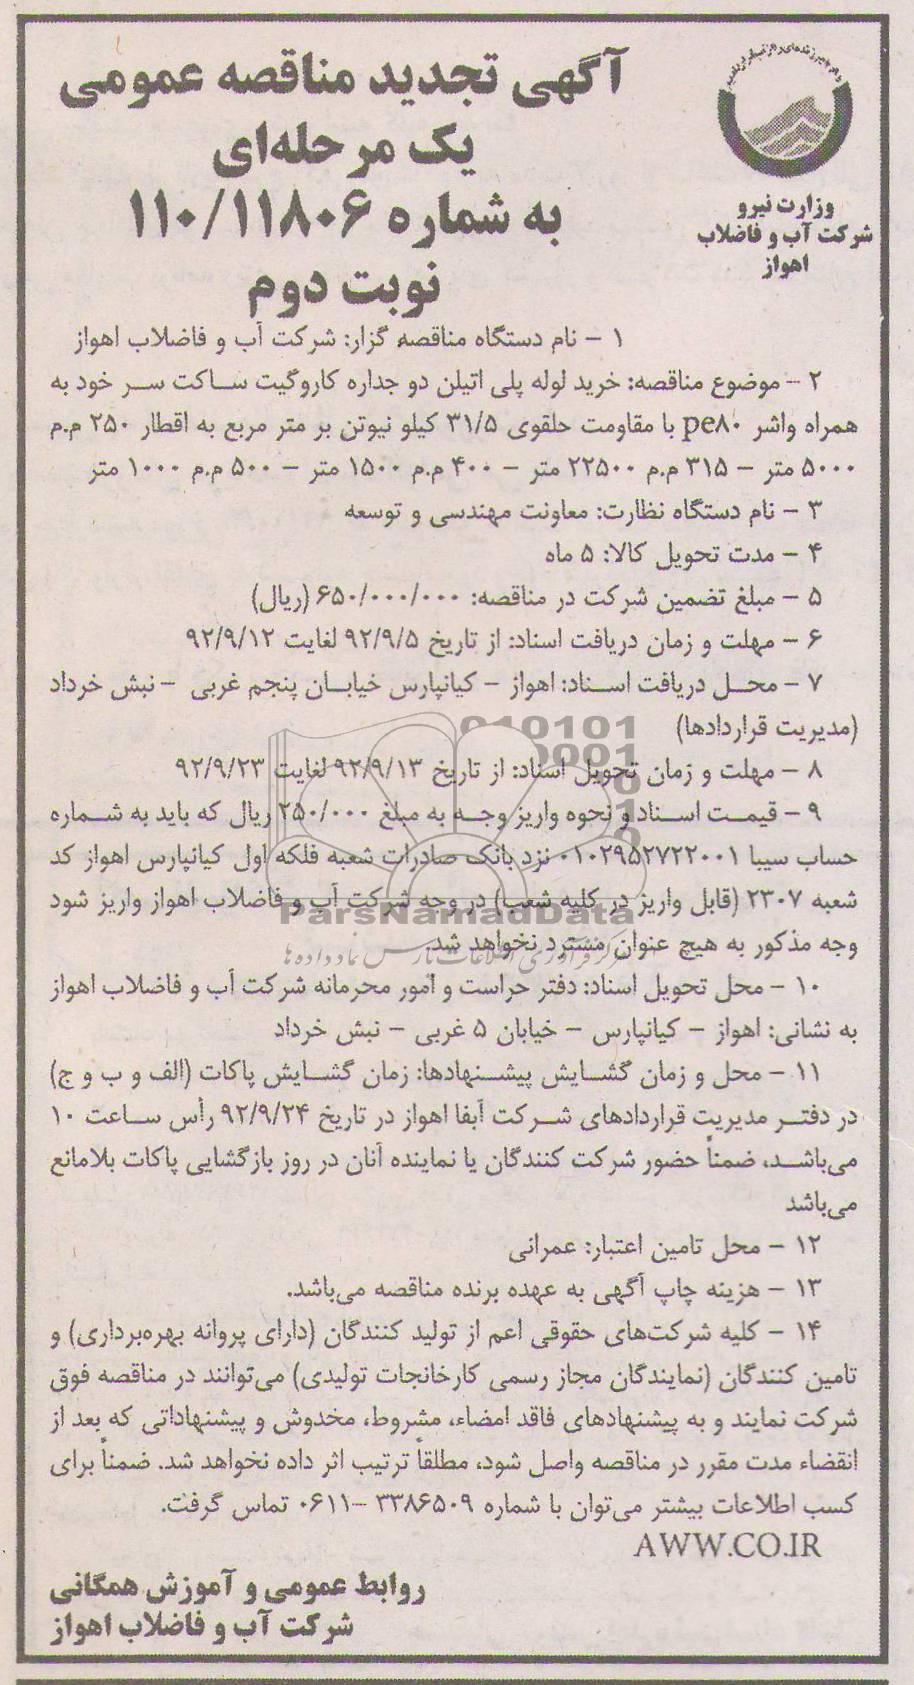 آگهی تجدید مناقصه عمومی
یک مرحله‌ای
به شماره ۱۱۰/۱۱۸۰۶
نوبت دوم
وزارت نیرو
شرکت آب و فاضلاب
اهواز
۱ – نام دستگاه مناقصه گزار: شرکت آب و فاضلاب اهواز
۲ – موضوع مناقصه: خرید لوله پلی اتیلن دو جداره کاروگیت ساکت سر خود به
همراه واشر pe۸۰ با مقاومت حلقوی ۳۱/۵ کیلو نیوتن بر متر مربع به اقطار ۲۵۰ م.م
۵۰۰۰ متر – ۳۱۵ م.م ۲۲۵۰۰ متر – ۴۰۰ م.م ۱۵۰۰ متر – ۵۰۰ م.م ۱۰۰۰ متر
۳ – نام دستگاه نظارت: معاونت مهندسی و توسعه
۴ – مدت تحویل کالا: ۵ ماه
۵ – مبلغ تضمین شرکت در مناقصه: ۶۵۰/۰۰۰/۰۰۰ (ریال)
۶ – مهلت و زمان دریافت اسناد: از تاریخ ۹۲/۹/۵ لغایت ۹۲/۹/۱۲
۷ – محل دریافت اسناد: اهواز – کیانپارس خیابان پنجم غربی – نبش خرداد
(مدیریت قراردادها)
۸ – مهلت و زمان تحویل اسناد: از تاریخ ۹۲/۹/۱۳ لغایت ۹۲/۹/۲۳
۹ – قیمت اسناد و نحوه واریز وجه به مبلغ ۲۵۰/۰۰۰ ریال که باید به شماره
حساب سیبا ۰۱۰۲۹۵۲۷۲۲۰۰۱ نزد بانک صادرات شعبه فلکه اول کیانپارس اهواز کد
شعبه ۲۳۰۷ (قابل واریز در کلیه شعب) در وجه شرکت آب و فاضلاب اهواز واریز شود
وجه مذکور به هیچ عنوان مسترد نخواهد شد.
۱۰ – محل تحویل اسناد: دفتر حراست و امور محرمانه شرکت آب و فاضلاب اهواز
به نشانی: اهواز – کیانپارس – خیابان ۵ غربی – نبش خرداد
۱۱ – محل و زمان گشایش پیشنهادها: زمان گشایش پاکات (الف و ب و ج)
در دفتر مدیریت قراردادهای شرکت آبفا اهواز در تاریخ ۹۲/۹/۲۴ رأس ساعت ۱۰
می‌باشد، ضمناً حضور شرکت کنندگان یا نماینده آنان در روز بازگشایی پاکات بلامانع
می‌باشد
۱۲ – محل تامین اعتبار: عمرانی
۱۳ – هزینه چاپ آگهی به عهده برنده مناقصه می‌باشد.
۱۴ – کلیه شرکت‌های حقوقی اعم از تولید کنندگان (دارای پروانه بهره‌برداری) و
تامین کنندگان (نمایندگان مجاز رسمی کارخانجات تولیدی) می‌توانند در مناقصه فوق
شرکت نمایند و به پیشنهادهای فاقد امضاء، مشروط، مخدوش و پیشنهاداتی که بعد از
انقضاء مدت مقرر در مناقصه واصل شود، مطلقاً ترتیب اثر داده نخواهد شد. ضمناً برای
کسب اطلاعات بیشتر می‌توان با شماره ۳۳۸۶۵۰۹ –۰۶۱۱ تماس گرفت.
AWW.CO.IR
روابط عمومی و آموزش همگانی
شرکت آب و فاضلاب اهواز
ParsNamadData
مرکز فرآوری اطلاعات پارس نماد داده ها